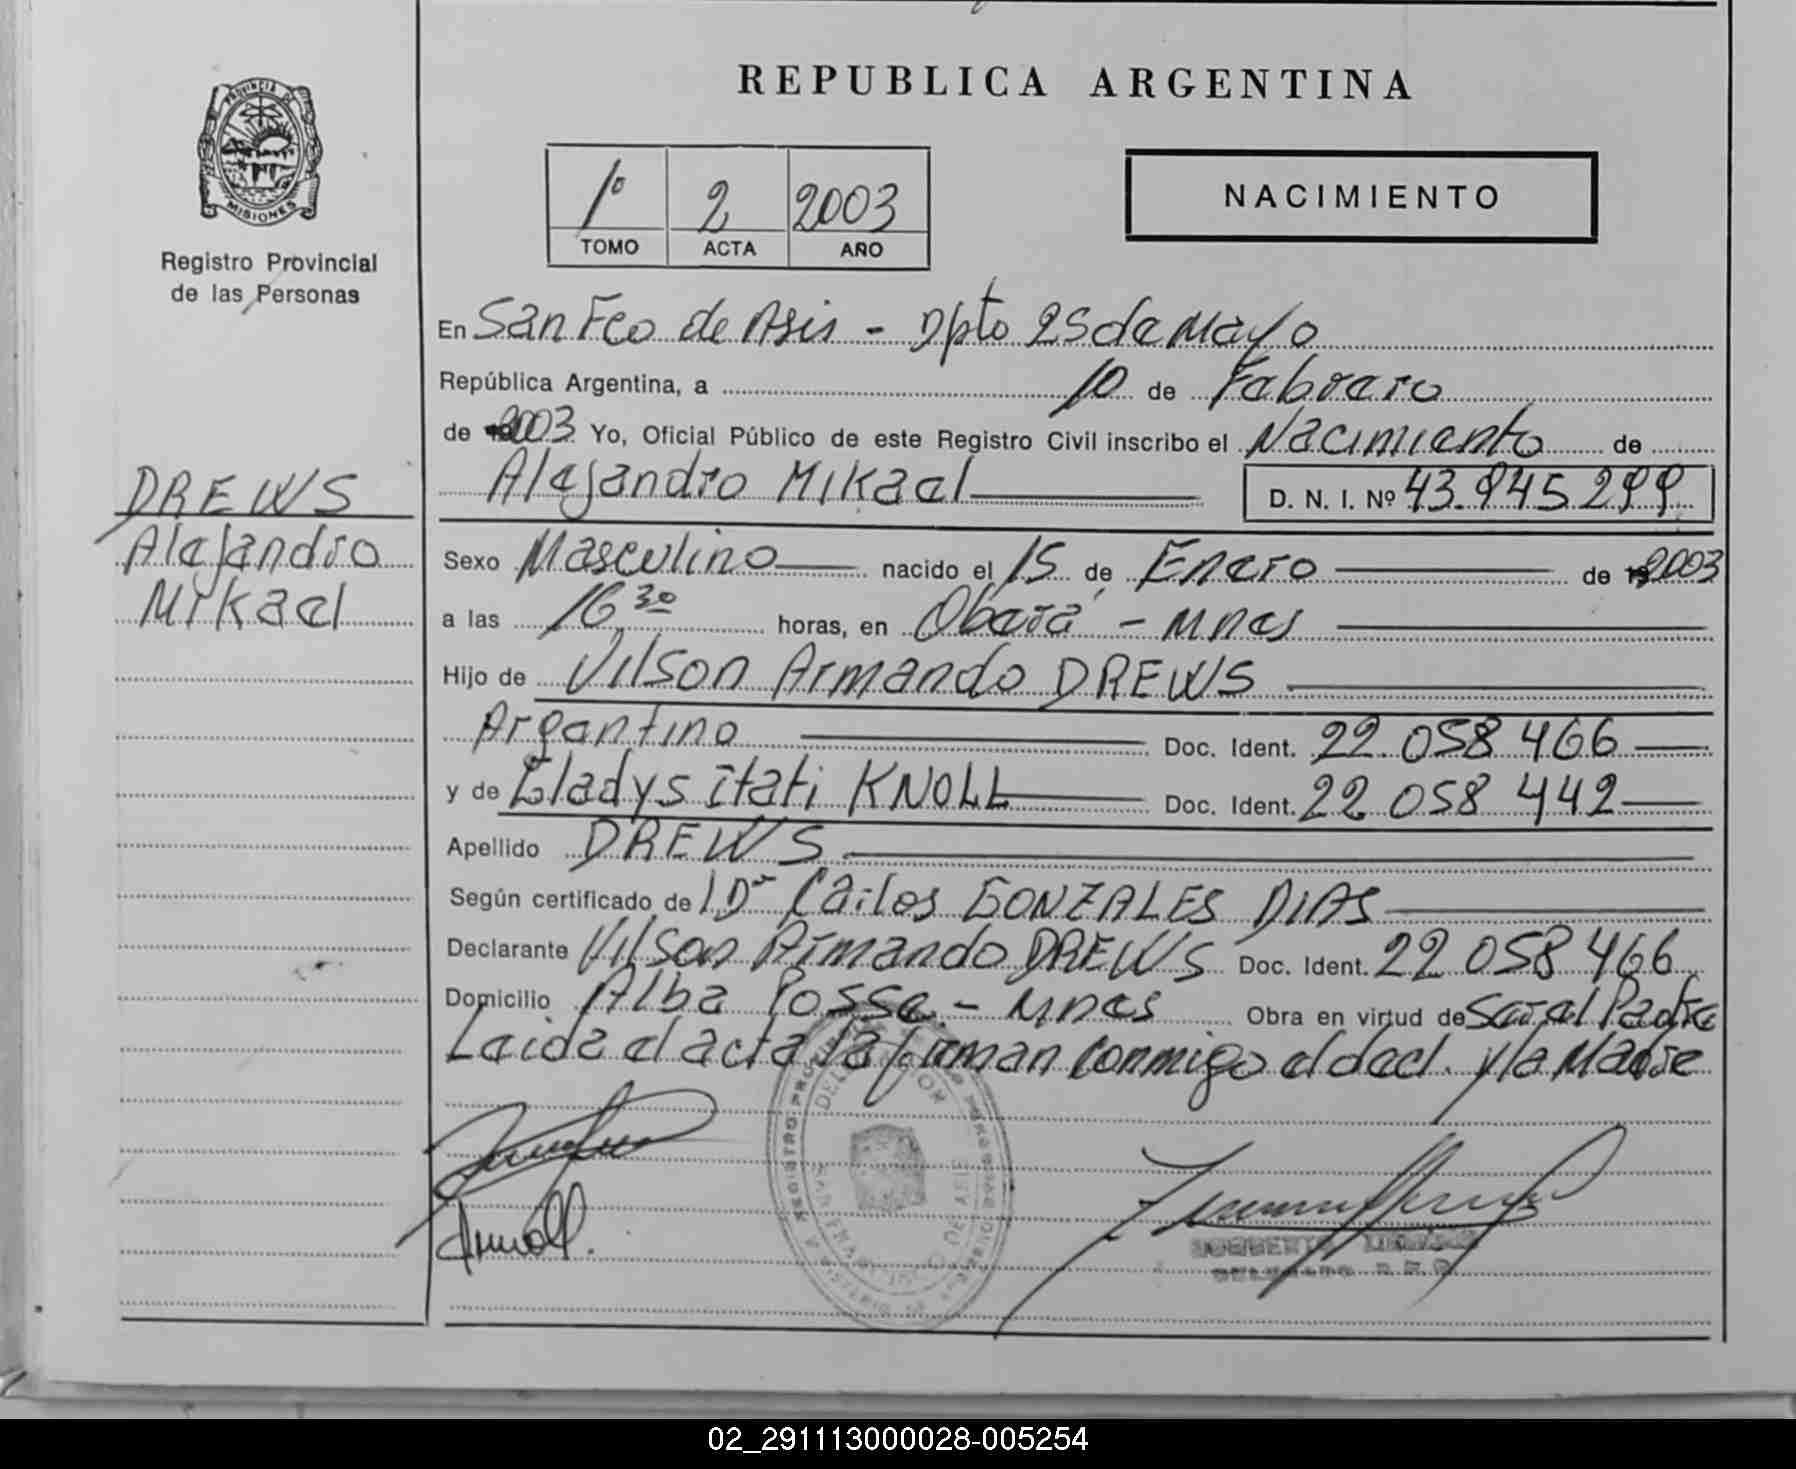 REPUBLICA ARGENTINA
PROVINCIA DE
MISIONES
Registro Provincial
de las Personas
1º 2 2003
TOMO ACTA AÑO
NACIMIENTO
En San Fco de Asis - Dpto 25 de Mayo
República Argentina, a 10 de Febrero
de 2003 Yo, Oficial Público de este Registro Civil inscribo el Nacimiento de
Alejandro Mikael D. N. I. Nº 43.945.299
DREWS
Alejandro
Mikael
Sexo Masculino nacido el 15 de Enero de 2003
a las 16 30 horas, en Oberá - Mnes
Hijo de Vilson Armando DREWS
Argentino Doc. Ident. 22.058 466
y de Gladys itati KNOLL Doc. Ident. 22 058 442
Apellido DREWS
Según certificado de Dr Carlos GONZALES DIAS
Declarante Vilson Armando DREWS Doc. Ident. 22 058 466
Domicilio Alba Posse - Mnes Obra en virtud de Ser el Padre
Leida el acta la firman conmigo el decl. y la Madre
02_291113000028-005254